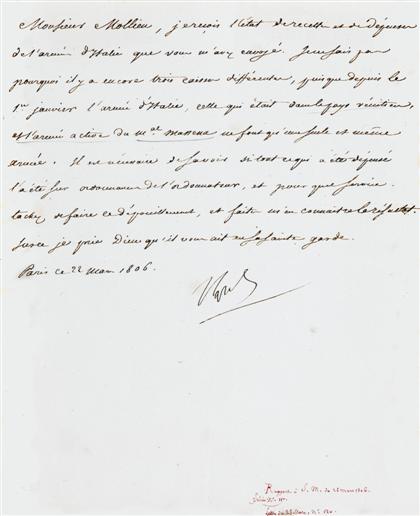 Monsieur Mollien, je reçois l'état de recette et de dépense
de l'armée d'Italie que vous m'avez envoyé. Je ne sais pas
pourquoi il y a encore trois caisses différentes, puisque depuis le
1er janvier l'armée d'Italie, celle qui était dans le pays vénitien
et l'armée active du Mal Massena ne font qu'une seule et même
armée. Il est nécessaire de savoir si tout ce qui a été dépensé
l'a été sur ordonnance de l'ordonnateur, et pour quel service.
tachez de faire ce dépouillement, et faites m'en connaitre le résultat.
Sur ce je prie Dieu qu'il vous ait en sa sainte garde.
Paris ce 22 mars 1806.
Rapport à S. M. du 26 mars 1806.